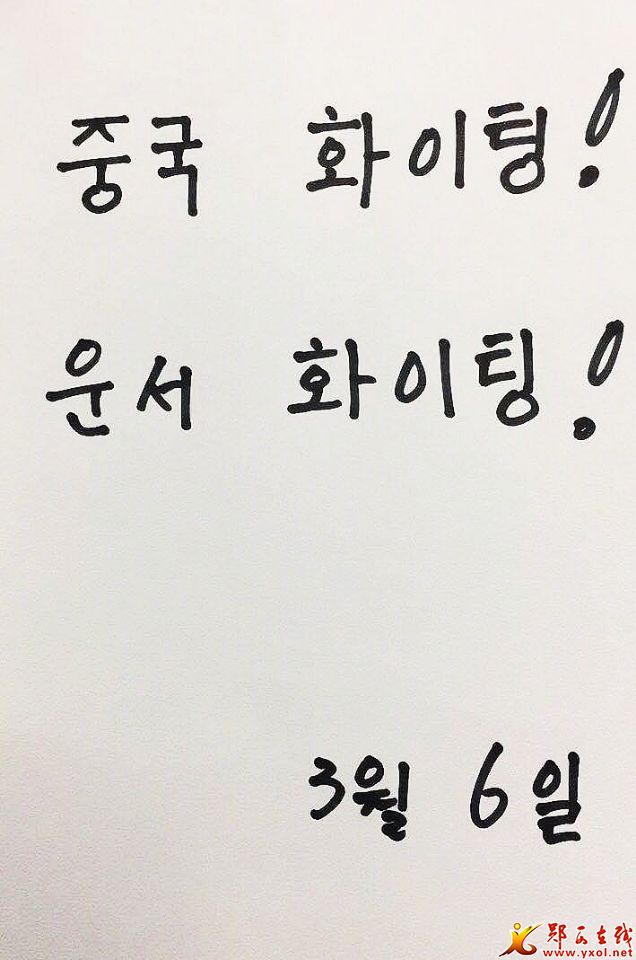 중국 화이팅!
운서 화이팅!
3월 6일
郧西在线
www.yxol.net